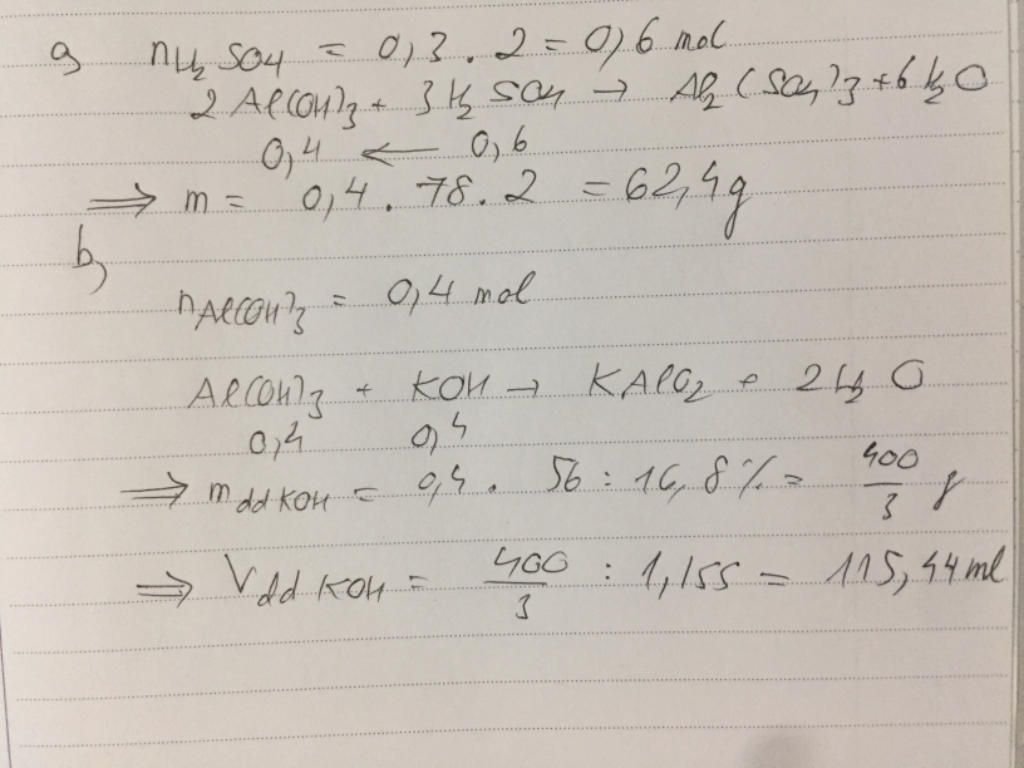 a, nH₂SO₄ = 0,3 . 2 = 0,6 mol
2 Al(OH)₃ + 3 H₂SO₄ → Al₂(SO₄)₃ + 6 H₂O
0,4 ← 0,6
⇒ m = 0,4 . 78 . 2 = 62,4g
b,
nAl(OH)₃ = 0,4 mol
Al(OH)₃ + KOH → KAlO₂ + 2H₂O
0,4 0,4
⇒ mddKOH = 0,4 . 56 : 16,8% = 400/3 g
⇒ VddKOH = 400/3 : 1,155 = 115,44ml